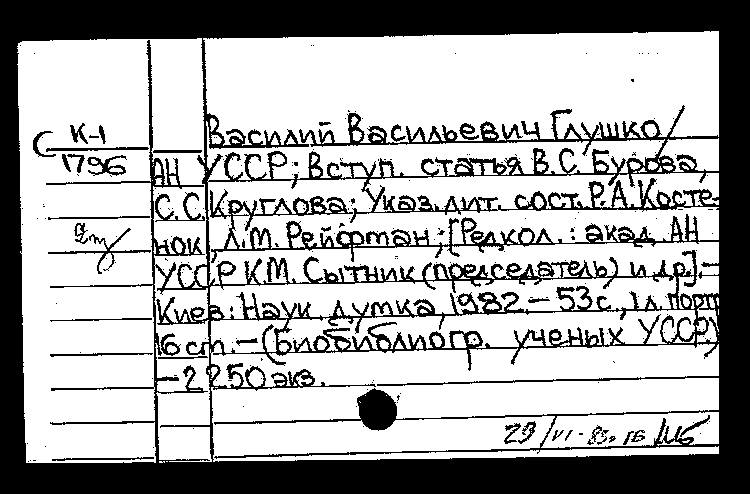 Василий Васильевич Глушко /
С К-1
1796
АН УССР; Вступ. статья В.С. Бурова,
С.С. Круглова; Указ. лит. сост. Р.А. Косте-
нок, Л.М. Рейфтман; [Редкол.: акад. АН
УССР К.М. Сытник (председатель) и др.]. —
Киев: Наук. думка, 1982. — 53 с., 1 л. портр.
16 см. — (Биобиблиогр. ученых УССР)
— 2250 экз.
29/VI - 83.